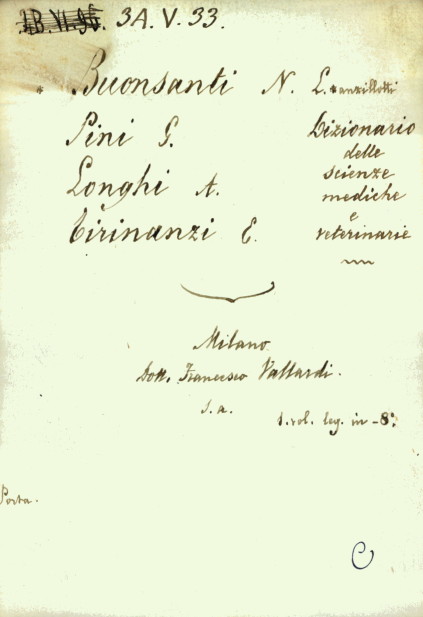 1B.VI.96. 3A.V.33.
* Buonsanti N. Lanzillotti
Pini G. Dizionario
delle
Longhi A. scienze
mediche
e
Tirinanzi E. veterinarie
Milano
Dott. Francesco Vallardi.
s.a.
1. vol. leg. in-8º.
Porta.
C